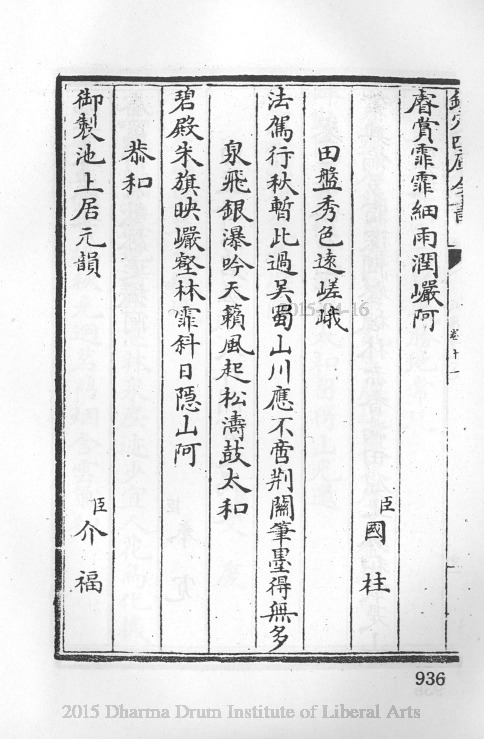 欽定四庫全書
卷十一
睿賞霏霏細雨潤巗阿
臣國柱
田盤秀色遠嵯峨
法駕行秋暫此過吳蜀山川應不啻荆關筆墨得無多
泉飛銀瀑吟天籟風起松濤鼓太和
碧殿朱旗映巗壑林霏斜日隱山阿
恭和
御製池上居元韻
臣介福
936
2015-04-16
2015 Dharma Drum Institute of Liberal Arts